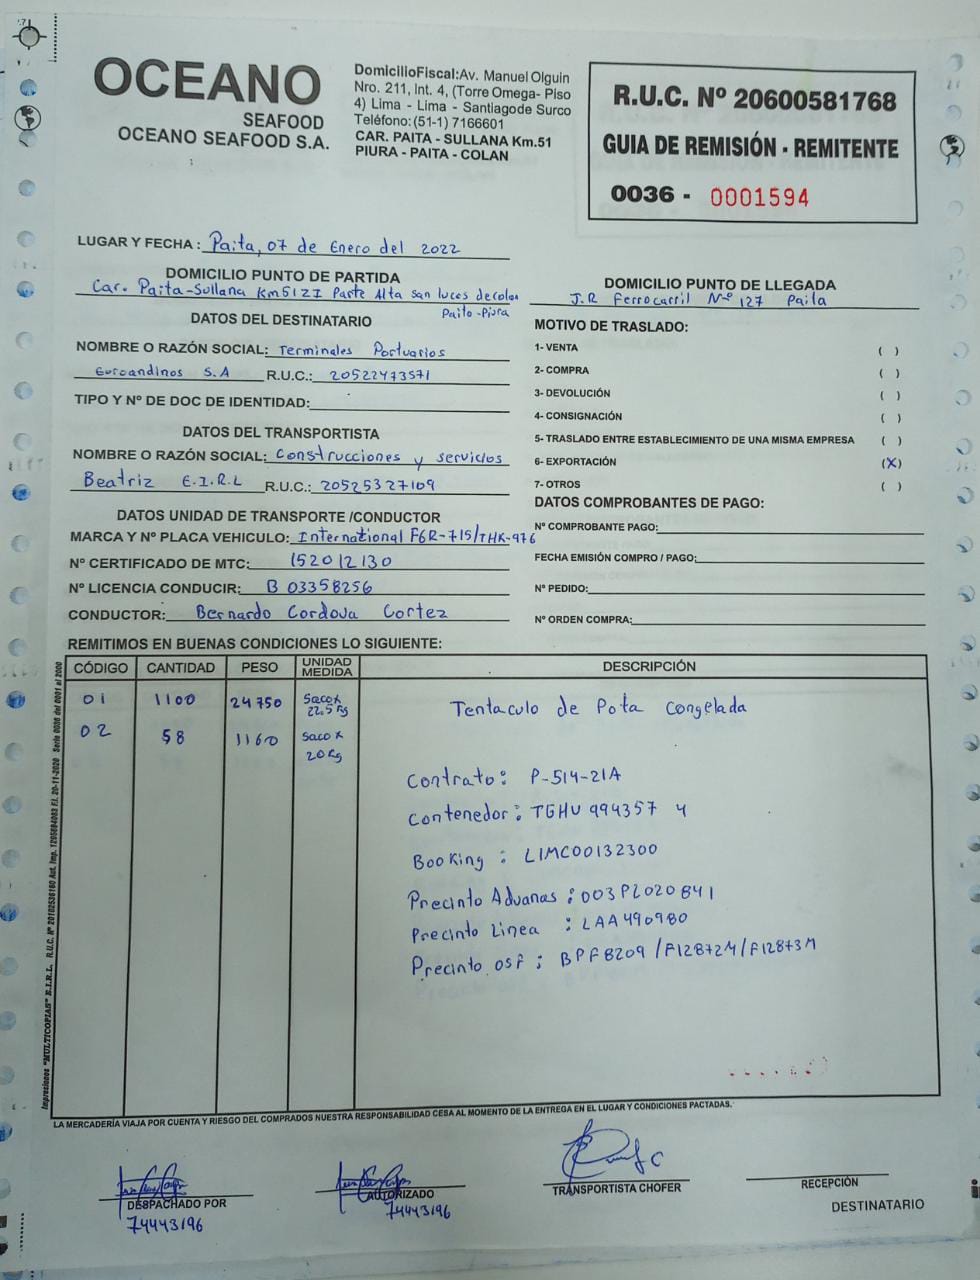 OCEANO
SEAFOOD
OCEANO SEAFOOD S.A.
DomicilioFiscal:Av. Manuel Olguin
Nro. 211, Int. 4, (Torre Omega- Piso
4) Lima - Lima - Santiagode Surco
Teléfono: (51-1) 7166601
CAR. PAITA - SULLANA Km.51
PIURA - PAITA - COLAN
R.U.C. Nº 20600581768
GUIA DE REMISIÓN - REMITENTE
0036 - 0001594
LUGAR Y FECHA : Paita, 07 de Enero del 2022
DOMICILIO PUNTO DE PARTIDA
Car. Paita-Sullana Km 51 ZI Parte Alta san lucas de colan
Paita-Piura
DOMICILIO PUNTO DE LLEGADA
J.R Ferrocarril Nº 127 Paita
DATOS DEL DESTINATARIO
NOMBRE O RAZÓN SOCIAL: Terminales Portuarios
Euroandinos S.A R.U.C.: 20522473571
TIPO Y Nº DE DOC DE IDENTIDAD:
DATOS DEL TRANSPORTISTA
NOMBRE O RAZÓN SOCIAL: Construcciones y servicios
Beatriz E.I.R.L R.U.C.: 20525327109
DATOS UNIDAD DE TRANSPORTE /CONDUCTOR
MARCA Y Nº PLACA VEHICULO: International F6R-715/THK-976
Nº CERTIFICADO DE MTC: 152012130
Nº LICENCIA CONDUCIR: B 03358256
CONDUCTOR: Bernardo Cordova Cortez
MOTIVO DE TRASLADO:
1- VENTA ( )
2- COMPRA ( )
3- DEVOLUCIÓN ( )
4- CONSIGNACIÓN ( )
5- TRASLADO ENTRE ESTABLECIMIENTO DE UNA MISMA EMPRESA ( )
6- EXPORTACIÓN (X)
7- OTROS ( )
DATOS COMPROBANTES DE PAGO:
Nº COMPROBANTE PAGO:
FECHA EMISIÓN COMPRO / PAGO:
Nº PEDIDO:
Nº ORDEN COMPRA:
REMITIMOS EN BUENAS CONDICIONES LO SIGUIENTE:
CÓDIGO CANTIDAD PESO UNIDAD MEDIDA DESCRIPCIÓN
01 1100 24750 Saco x 22.5 Kg Tentaculo de Pota Congelada
02 58 1160 Saco x 20 Kg
Contrato: P-514-21A
Contenedor: TGHU 994357 4
Booking : LIMC00132300
Precinto Aduanas : 003PZ020841
Precinto Linea : LAA490980
Precinto osf : BPF8209 /F12872M/F12873M
Impresiones "MULTICOPIAS" E.I.R.L. R.U.C. Nº 20102536160 Aut. Imp. 1205684083 F.I. 20-11-2020 Serie 0036 del 0001 al 2000
LA MERCADERÍA VIAJA POR CUENTA Y RIESGO DEL COMPRADOS NUESTRA RESPONSABILIDAD CESA AL MOMENTO DE LA ENTREGA EN EL LUGAR Y CONDICIONES PACTADAS.
DESPACHADO POR
74443196
AUTORIZADO
74443196
TRANSPORTISTA CHÓFER
RECEPCIÓN
DESTINATARIO